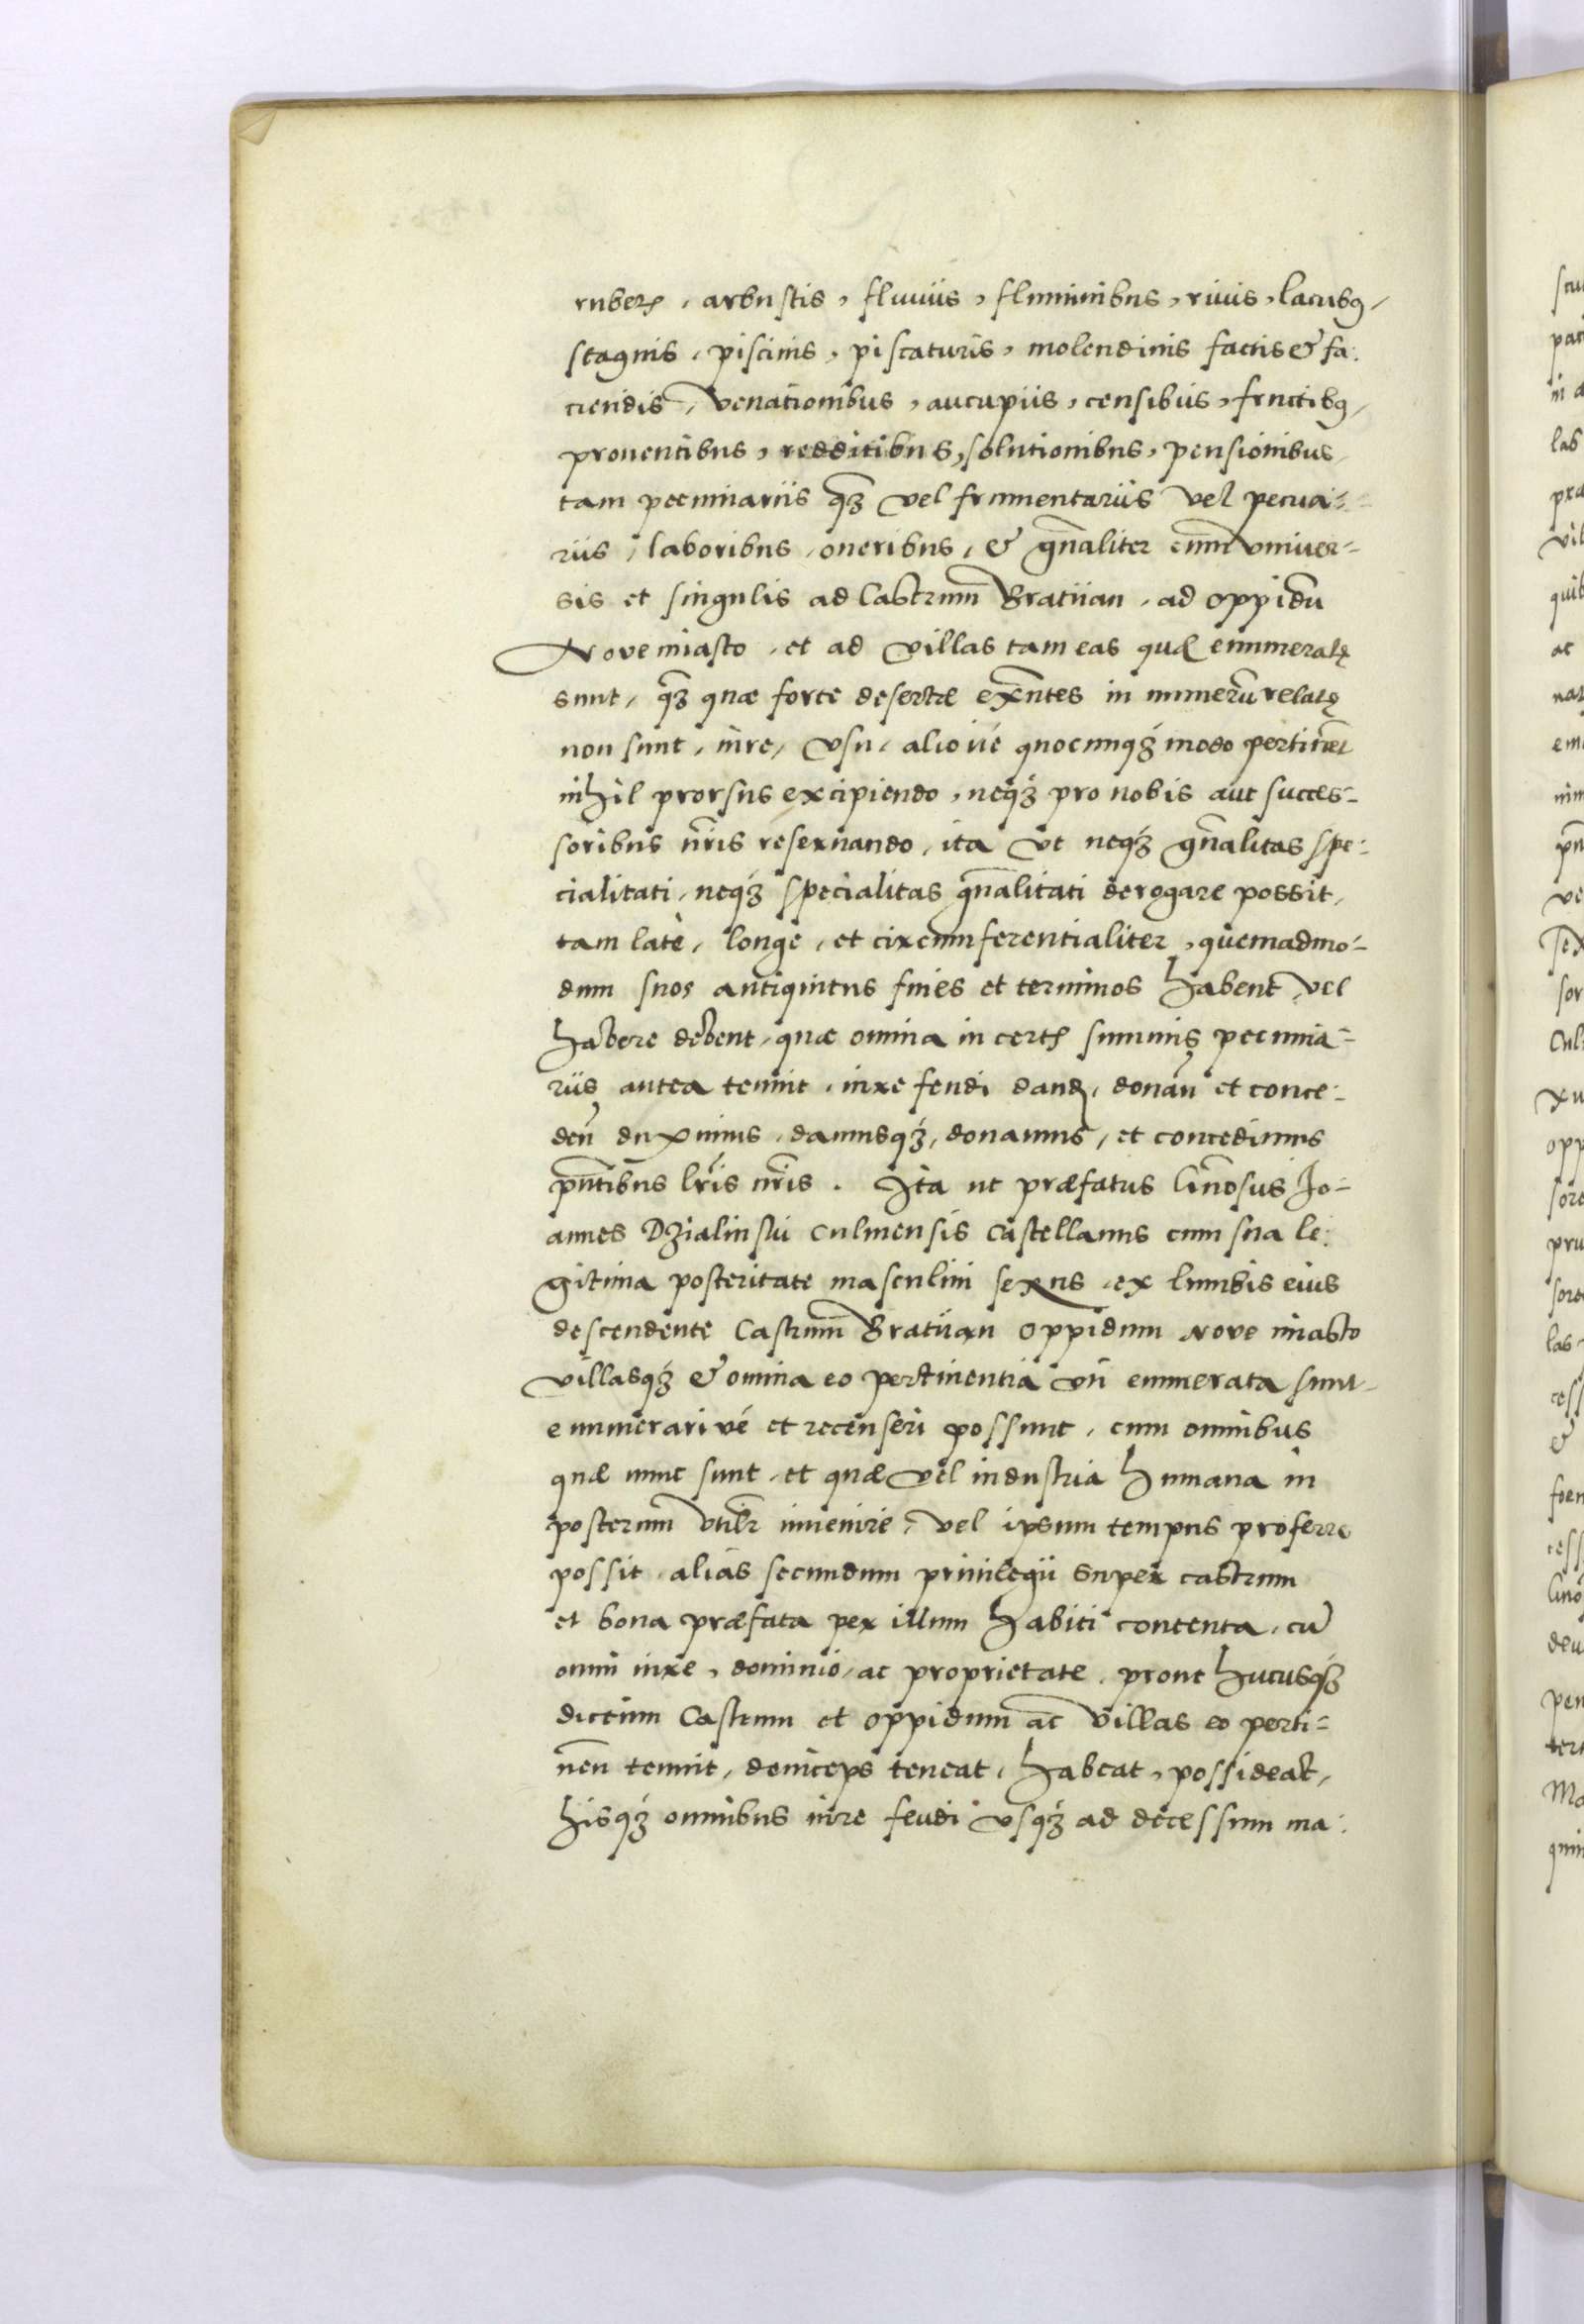 rubetꝭ, arbustis, fluuiis, fluminibus, riuis, lacubꝰ,
stagnis, piscinis, piscaturis, molendinis factis & fa:
ciendis, venationibus, aucupiis, censibus, fructibꝰ,
prouentibus, redditibus, solutionibus, pensionibus,
tam pecuniariis qꝫ̃ vel frumentariis vel pecua-
riis, laboribus, oneribus, & gn̄aliter cum vniuer-
sis et singulis ad Castrum Bratiian, ad oppidū
Nove miasto, et ad villas tam eas quæ enumeratę
sunt, qꝫ̃ quæ forte desertæ exn̄tes in numerū relatę
non sunt, iure, vsu, alioué quocunqꝫ modo pertinet
nihil prorsus excipiendo, neqꝫ pro nobis aut succes-
soribus nr̄is reseruando, ita vt neqꝫ gn̄alitas spe:
cialitati, neqꝫ specialitas gn̄alitati derogare possit,
tam latè, longè, et circumferentialiter, quemadmo-
dum suos antiquitus fines et terminos habent, vel
habere debent, quæ omnia in certꝭ summis pecunia-
riis antea tenuit, iure feudi dand, donan̄ et conce-
den̄ duximus, damusqꝫ, donamus, et concedimus
pn̄tibus lr̄is nr̄is. Ita ut præfatus Gn̄osus Jo-
annes Dzialinski Culmensis Castellanus cum sua le:
gitima posteritate masculini sexus ex lumbis eius
descendente Castrum Bratiian oppidum Nove miasto
villasqꝫ & omnia eo pertinentia vti enumerata sunt
enumerarivé et recenseri possunt, cum omnibus
quæ nunc sunt, et quæ vel industria humana in
posterum vtilr̄ inuenire, vel ipsum tempus proferre
possit, aliàs secundum priuilegii super castrum
et bona præfata per illum habiti contenta, cū
omni iure, dominio, ac proprietate, prout hucusqꝫ
dictum Castrum et oppidum ac villas eo perti-
nen̄ tenuit, deinceps teneat, habeat, possideat,
hisqꝫ omnibus iure feudi vsqꝫ ad decessum ma: